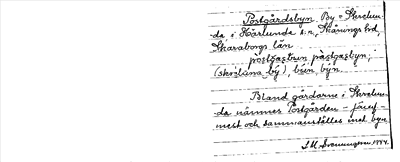 Postgårdsbyn. By = Skrelun-
da, i Härlunda s:n, Skånings hd,
Skaraborgs län
påstgasbun, påstgasbyn,
(skrålana_by), bun, byn.
Bland gårdarne i Skrelun-
da nämnes Postgården – jäcuf-
mest och sammanställes inst. byn
S.M. Svenungsson 1884.